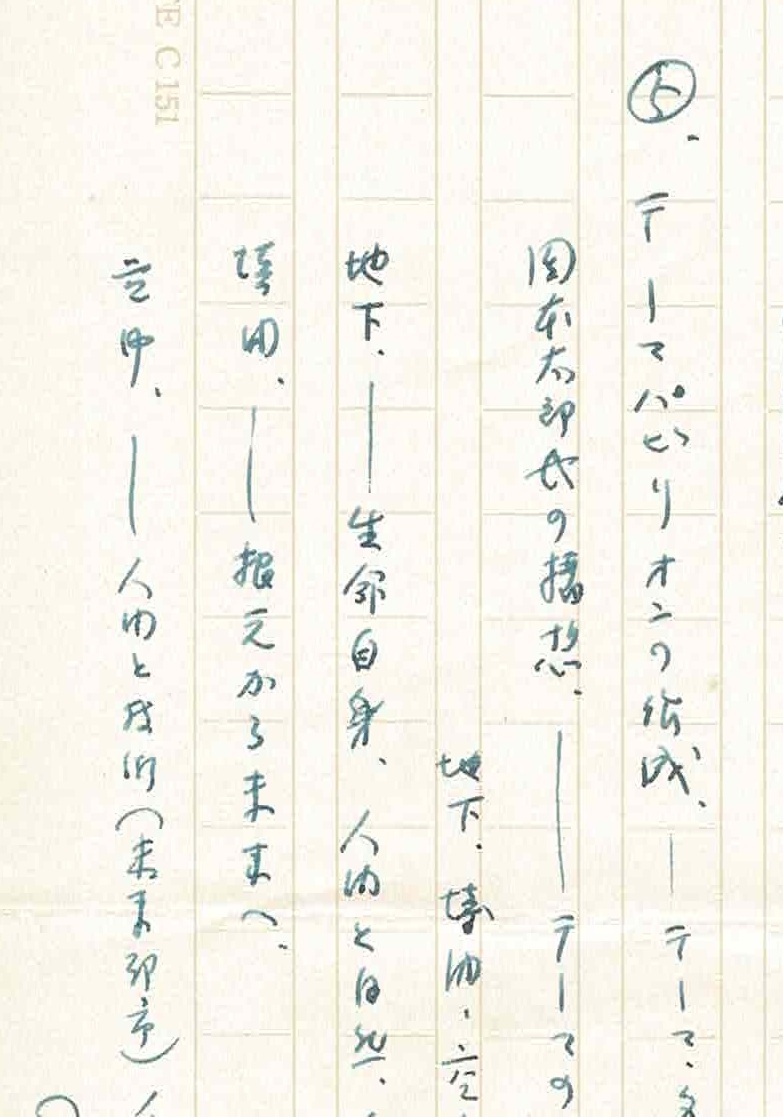 ⑤. テーマパビリオンの 成、— テーマ、
岡本太郎氏の構想、— テーマの
地下、塔内、空
地下、— 生命自身、人間と自然、
塔内、— 根元から未来へ、
空中、— 人間と技術(未来都市)
TE C 151